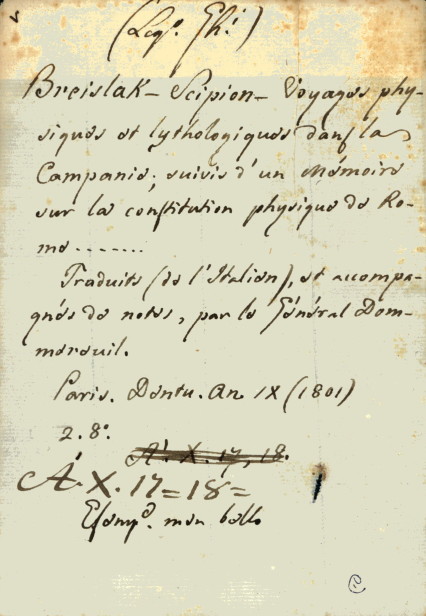 (Leg.º Ghi)
Breislak - Scipion - Voyages phy-
siques et lythologiques danſ la
Campanie; suivis d'un Mémoire
sur la conſtitution physique de Ro-
me -------
Traduits (de l'Italien), et accompa-
gnés de notes, par le Général Pom-
mereuil.
Paris. Dentu. An IX (1801)
2. 8.º
A. X. 17, 18.
A. X. 17 = 18 =
men bello